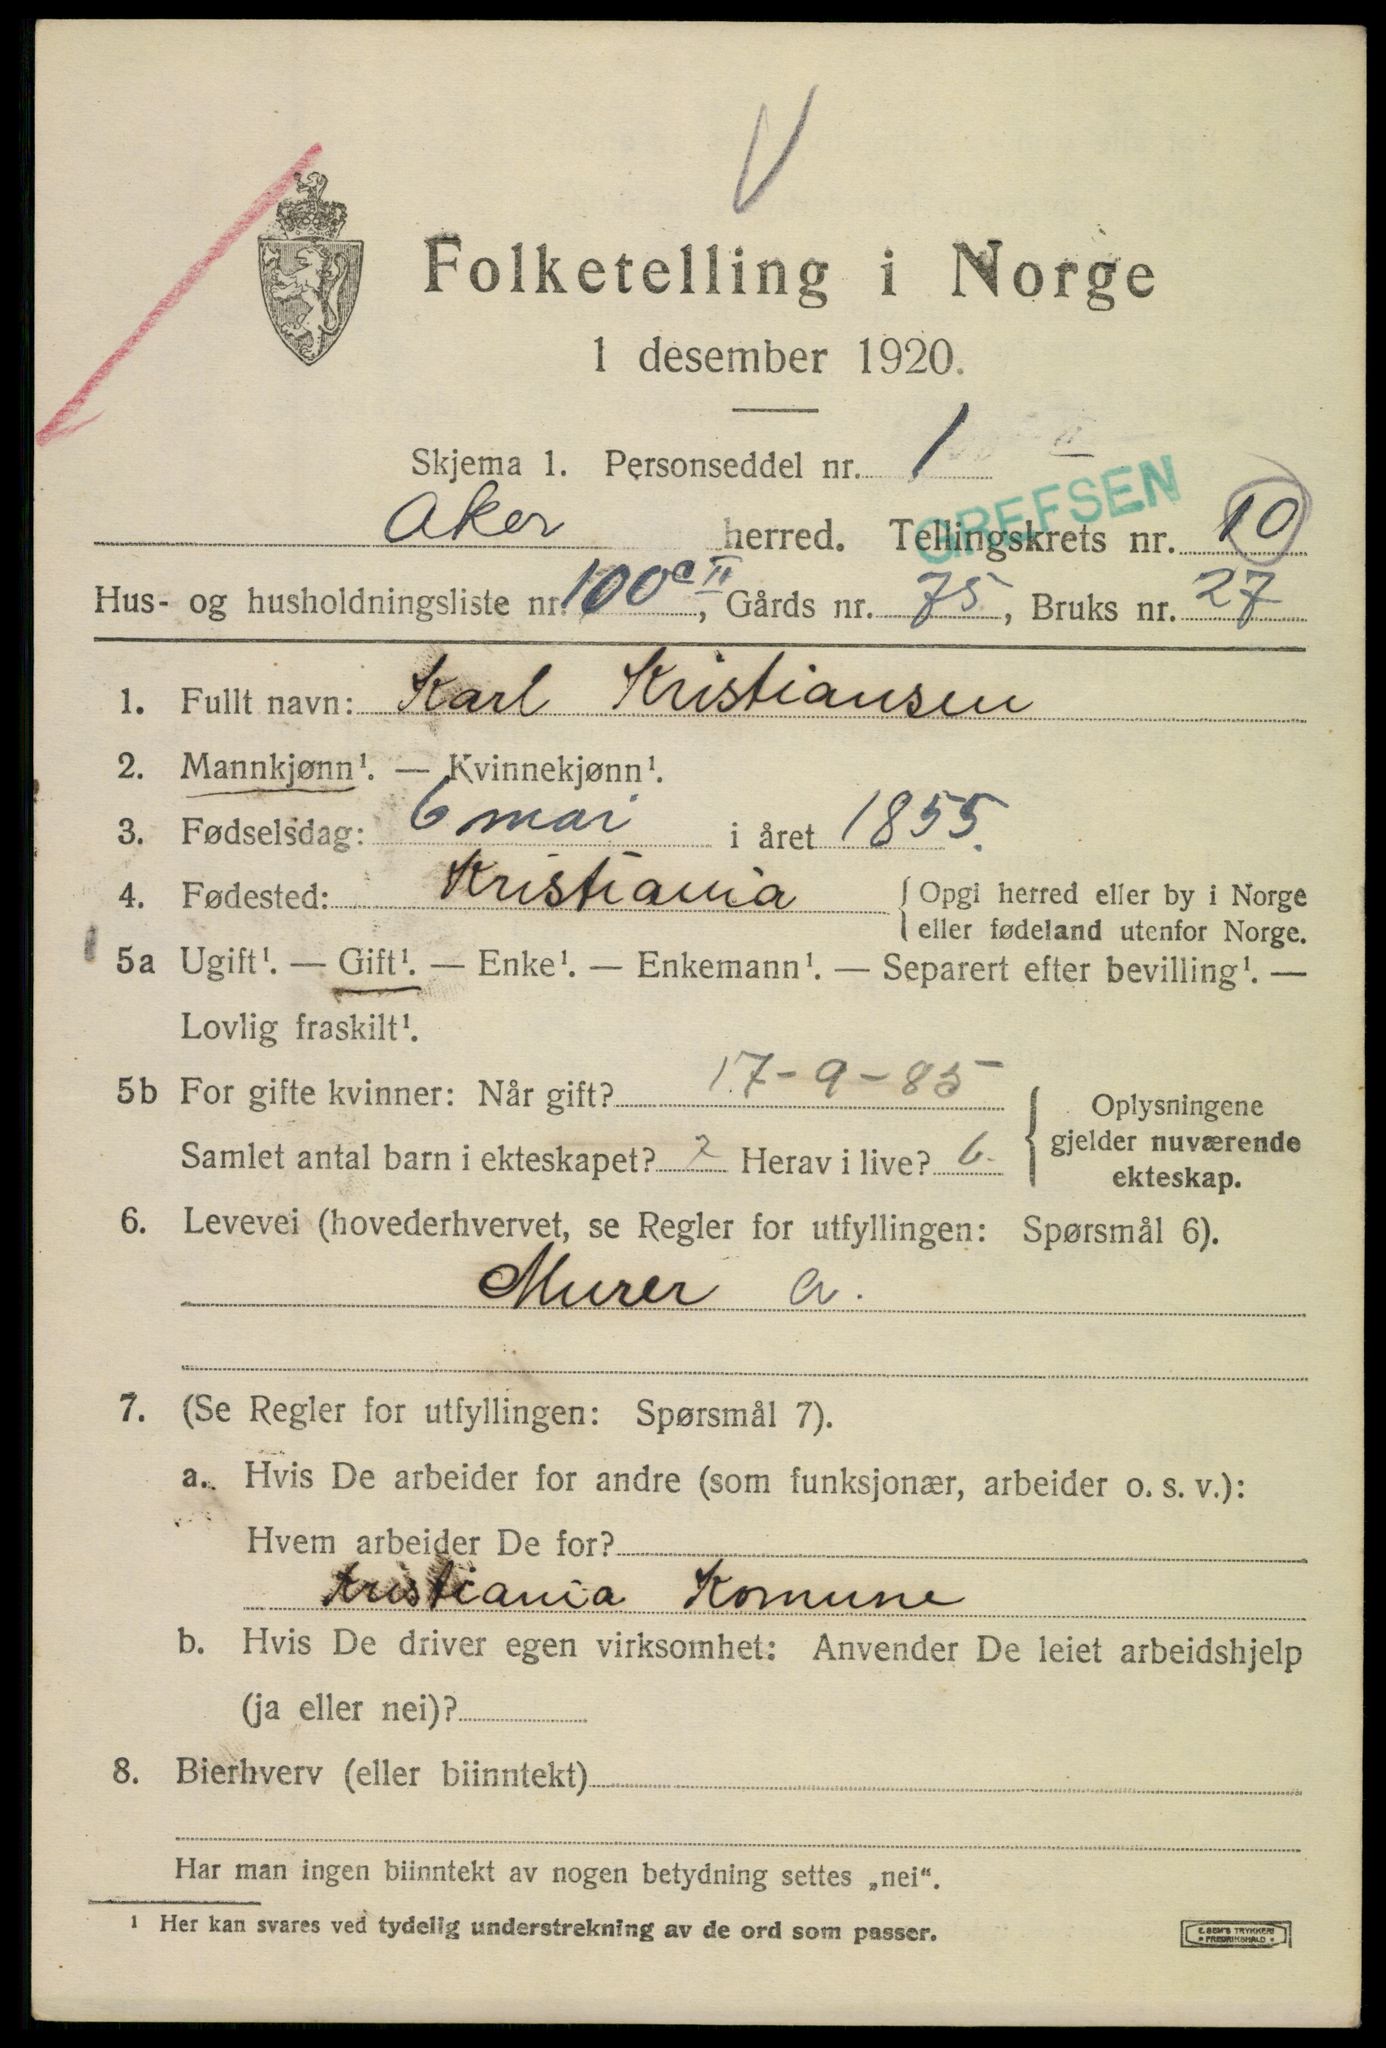 Folketelling i Norge
1 desember 1920.
Skjema 1. Personseddel nr. 1
GREFSEN
Aker herred. Tellingskrets nr. 10
Hus- og husholdningsliste nr. 100c II, Gårds nr. 75, Bruks nr. 27
1. Fullt navn: Karl Kristiansen
2. Mannkjønn¹. — Kvinnekjønn¹.
3. Fødselsdag: 6 mai i året 1855.
4. Fødested: Kristiania { Opgi herred eller by i Norge
eller fødeland utenfor Norge.
5a Ugift¹. — Gift¹. — Enke¹. — Enkemann¹. — Separert efter bevilling¹. —
Lovlig fraskilt¹.
5b For gifte kvinner: Når gift? 17-9-85
Samlet antal barn i ekteskapet? 7 Herav i live? 6.
Oplysningene
gjelder nuværende
ekteskap.
6. Levevei (hovederhvervet, se Regler for utfyllingen: Spørsmål 6).
Murer a.
7. (Se Regler for utfyllingen: Spørsmål 7).
a. Hvis De arbeider for andre (som funksjonær, arbeider o. s. v.):
Hvem arbeider De for?
Kristiania Komune
b. Hvis De driver egen virksomhet: Anvender De leiet arbeidshjelp
(ja eller nei)?
8. Bierhverv (eller biinntekt)
Har man ingen biinntekt av nogen betydning settes „nei“.
¹ Her kan svares ved tydelig understrekning av de ord som passer.
E. SEM'S TRYKKERI
FREDRIKSHALD